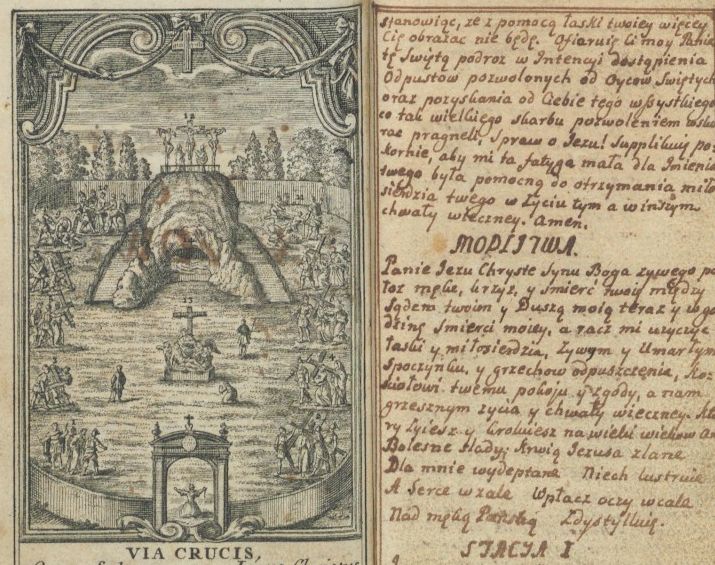 VIA CRUCIS,
stanowiąc, że z pomocą łaski twoiey więcey
Cię obrażać nie będę. Ofiaruię Ci moy Panie
tę Swiętą podroż w Intencyi dostąpienia
Odpustow pozwolonych od Oycow Swiętych
oraz pozyskania od Ciebie tego wszystkiego
co tak wielkiego skarbu pozwoleniem
pragneli, Spraw o Jezu! Supplikuy po=
kornie, aby mi ta fatyga mała dla Jmienia
twego była pomocną do otrzymania miło
sierdzia twego w życiu tym a w inszym
chwały wieczney. Amen.
MODLITWA.
Panie Jezu Chryste Synu Boga żywego po
łoż mękę, krzyż, y śmierć twoię między
Sądem twoim y Duszą moią teraz y w go
dzinę śmierci moiey, a racz mi użyczyć
łaski y miłosierdzia, Żywym y Umarłym
Spoczynku, y grzechow odpuszczenia, Koś
ciołowi twemu pokoju y zgody, a nam
grzesznym życia y chwały wieczney. Któ
ry żyiesz y Kroluiesz na wieki wiekow
Bolesne ślady, Krwią Jezusa zlane
Dla mnie wydeptane Niech lustruie
A Serce w żale Wpłacz oczy w cale
Nad męką Pańską Zdystylluię.
STACYA I